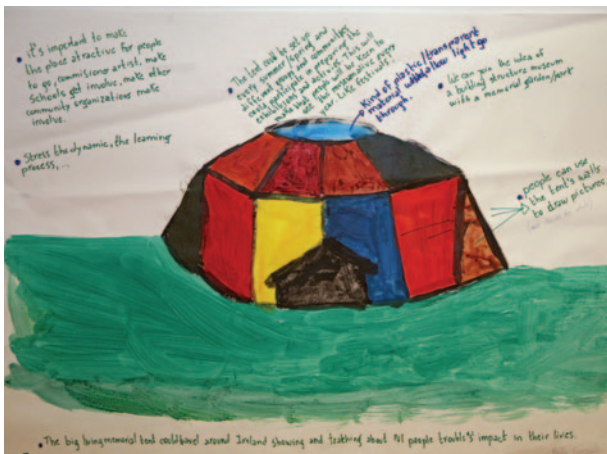 it's important to make
the place attractive for people
to go, commisioner artist, make
schools get involve, make other
community organizations make
involve.
Stress the dynamic, the learning
process, ...
The tent could be set up
every summer/spring and
different groups and communities
could participate in preparing the
exhibitions and activities. This will
make that people will be keen to
see the new memorative every
year. Like festivals!
Kind of plastic/transparent
material allow light go
through.
We can join the idea of
a building structure museum
with a memorial garden/park
people can use
the tent's walls
to draw pictures
The big living memorial tent could travel around Ireland showing and teaching about people trouble's impact in their lives.